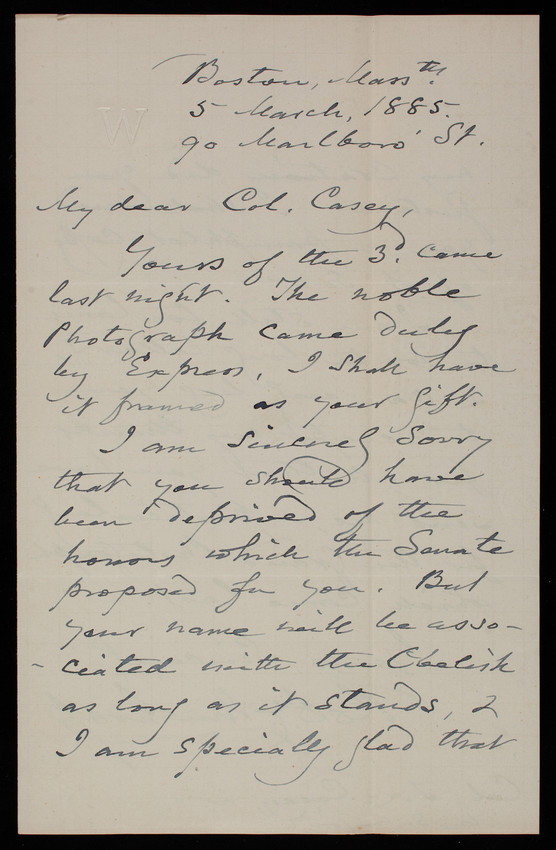 W
Boston, Massts.
5 March, 1885.
90 Marlboro' St.
My dear Col. Casey,
Yours of the 3d. came
last night. The noble
Photograph came duly
by Express, I shall have
it framed as your gift.
I am sincerely sorry
that you should have
been deprived of the
honors which the Senate
proposed for you. But
your name will be asso-
-ciated with the Obelisk
as long as it stands, &
I am specially glad that